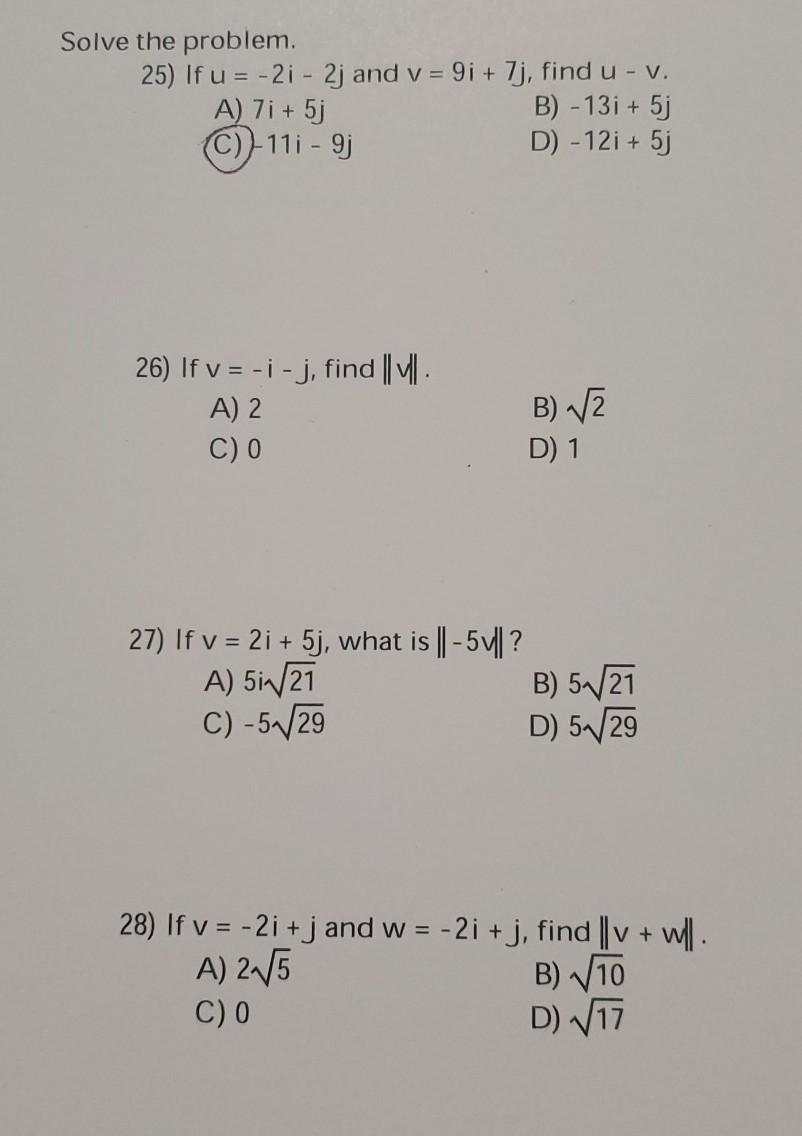 Solve the problem.
25) If u = -2i - 2j and v = 9i + 7j, find u - v.
A) 7i + 5j B) -13i + 5j
C) -11i - 9j D) -12i + 5j
26) If v = -i - j, find ‖v‖.
A) 2 B) √2
C) 0 D) 1
27) If v = 2i + 5j, what is ‖-5v‖?
A) 5i√21 B) 5√21
C) -5√29 D) 5√29
28) If v = -2i + j and w = -2i + j, find ‖v + w‖.
A) 2√5 B) √10
C) 0 D) √17